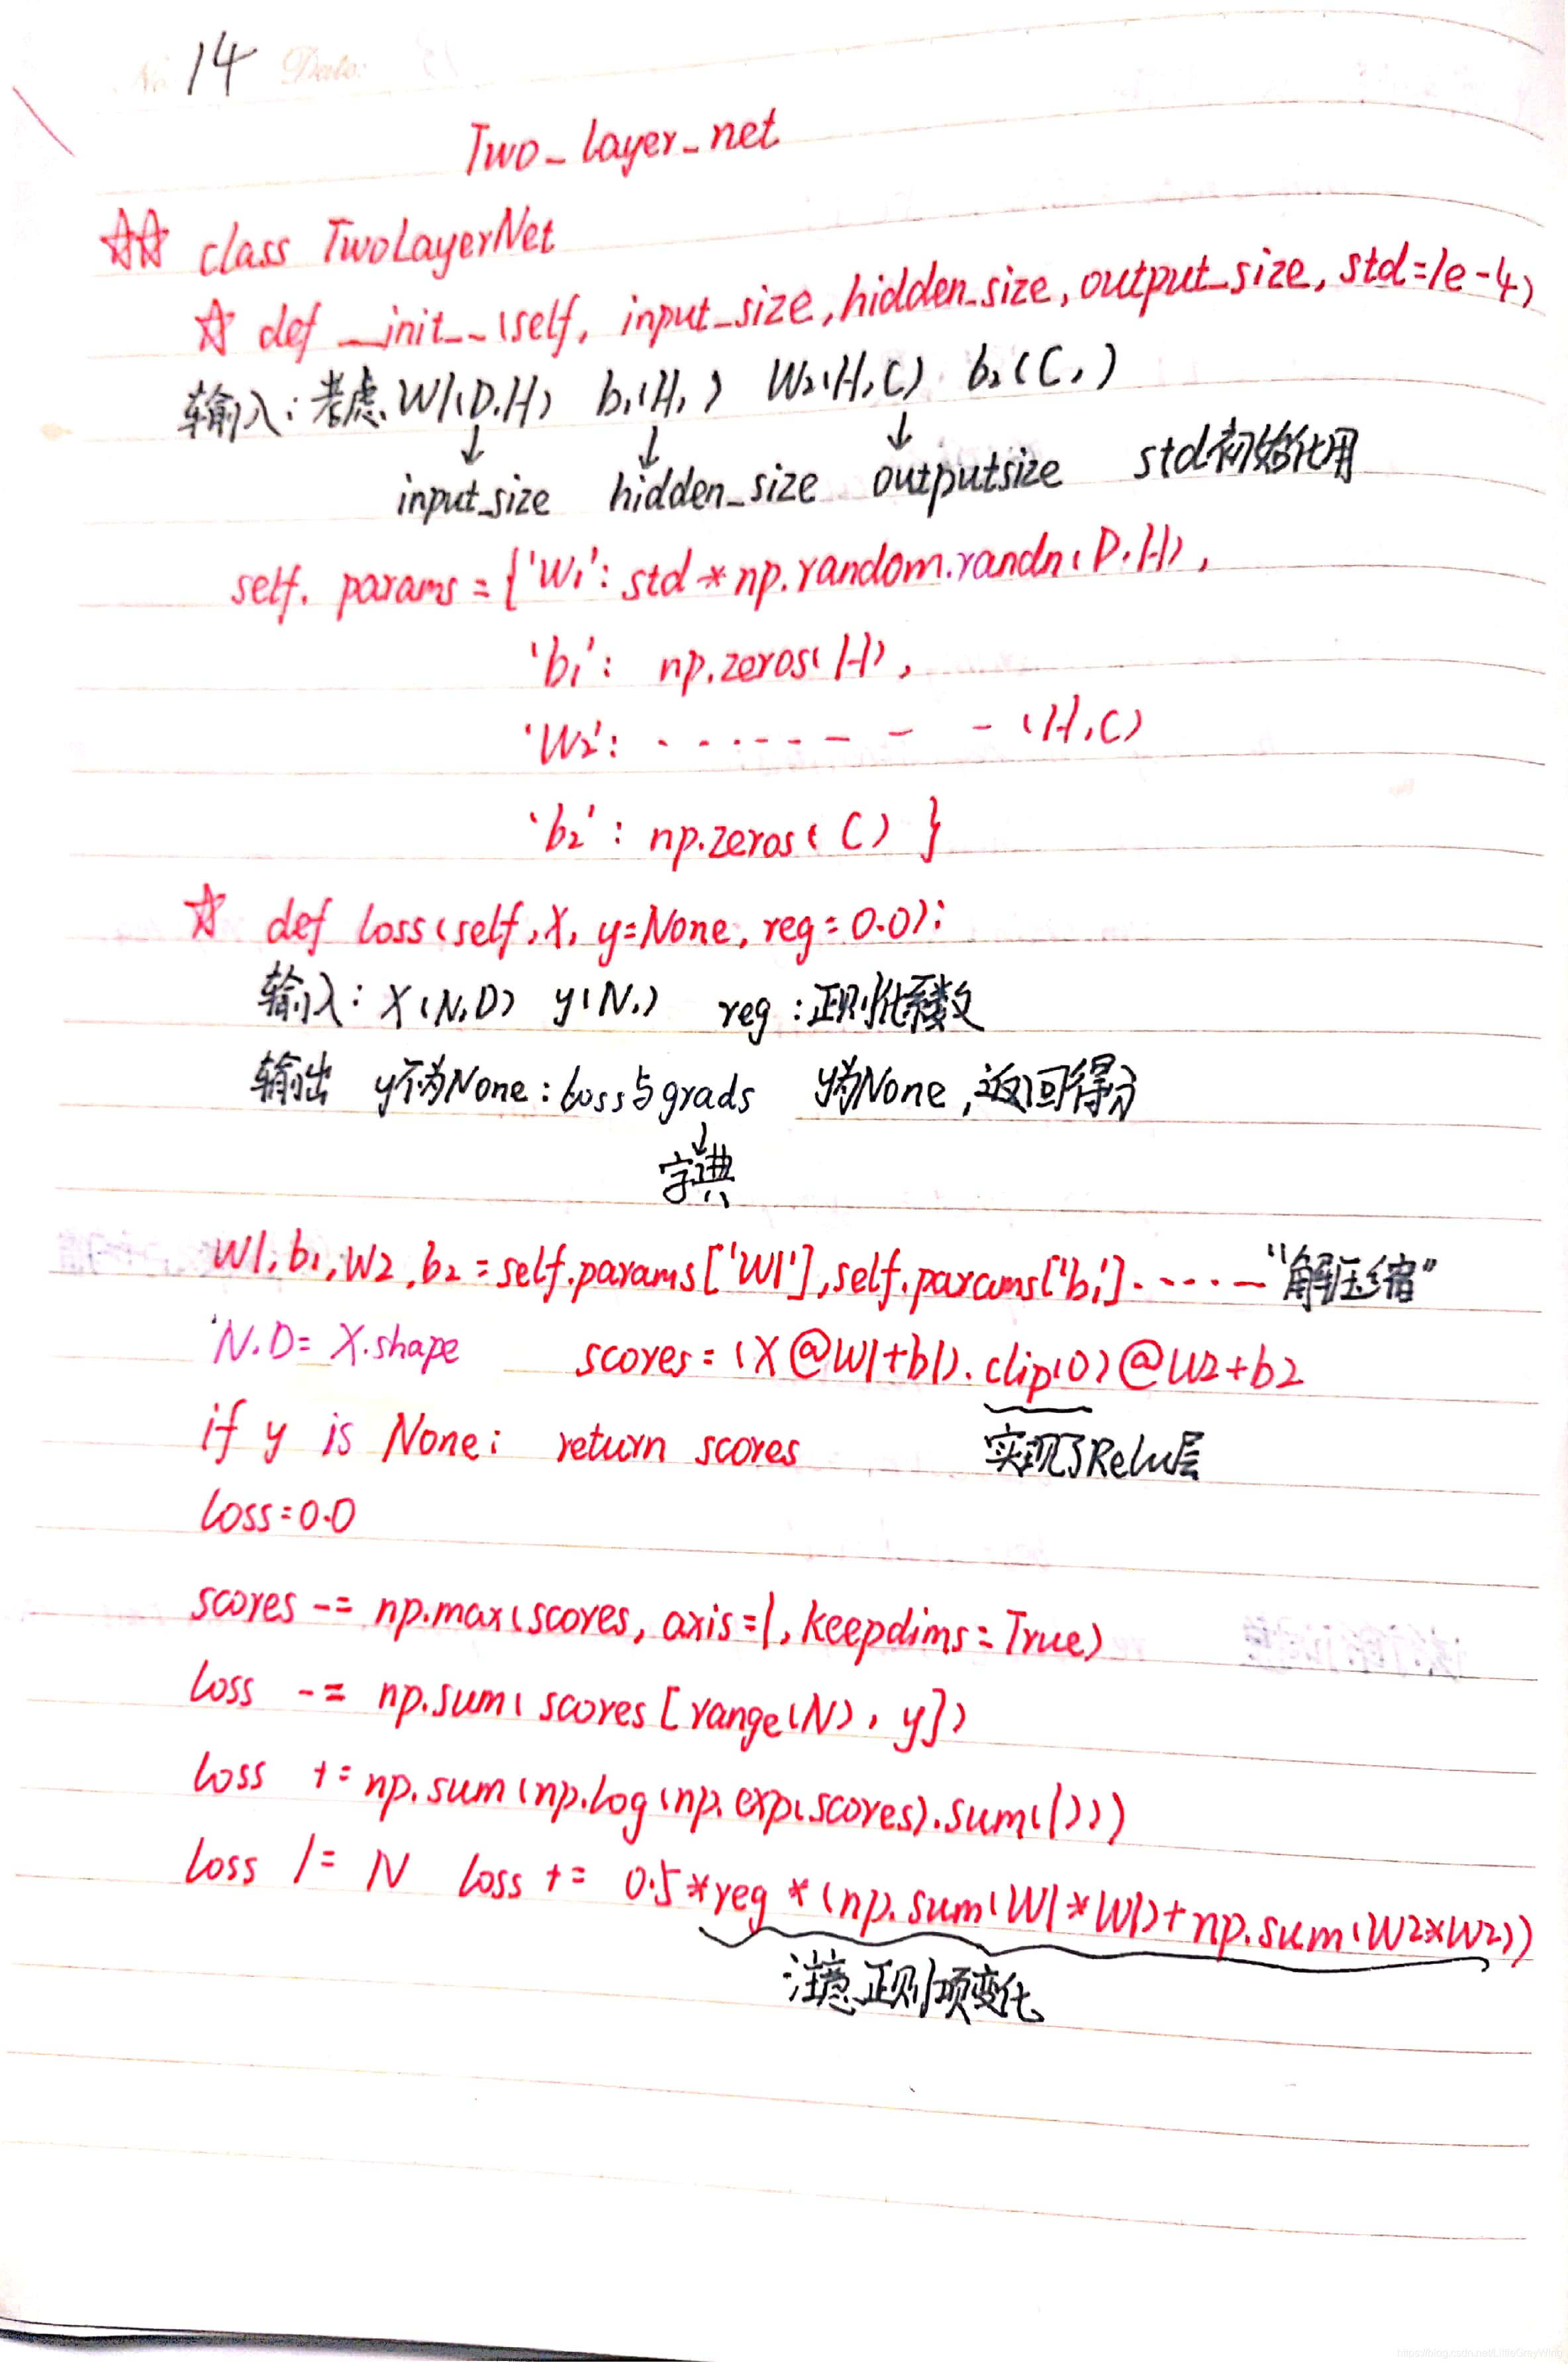 No. 14 Date:
Two_layer_net
☆☆ class TwoLayerNet
☆ def __init__(self, input_size, hidden_size, output_size, std=1e-4)
输入: 考虑 W1(D,H) b1(H,) W2(H,C) b2(C,)
↓ ↓ ↓
input_size hidden_size outputsize std初始化用
self.params = {'W1': std * np.random.randn(D,H),
'b1': np.zeros(H),
'W2': - - - - - - - - - (H,C)
'b2': np.zeros(C) }
☆ def loss(self, X, y=None, reg=0.0):
输入: X(N,D) y(N,) reg:正则化系数
输出 y不为None: loss与grads y为None,返回得分
↓
字典
W1, b1, W2, b2 = self.params['W1'], self.params['b1']. - - - - - “解压缩”
N,D= X.shape scores = (X@W1+b1).clip(0)@W2+b2
if y is None: return scores 实现了Relu层
loss=0.0
scores -= np.max(scores, axis=1, keepdims=True)
loss -= np.sum(scores[range(N), y])
loss += np.sum(np.log(np.exp(scores).sum(1)))
loss /= N loss += 0.5*reg*(np.sum(W1*W1)+np.sum(W2*W2))
注意正则项变化
https://blog.csdn.net/LittleGreyWing